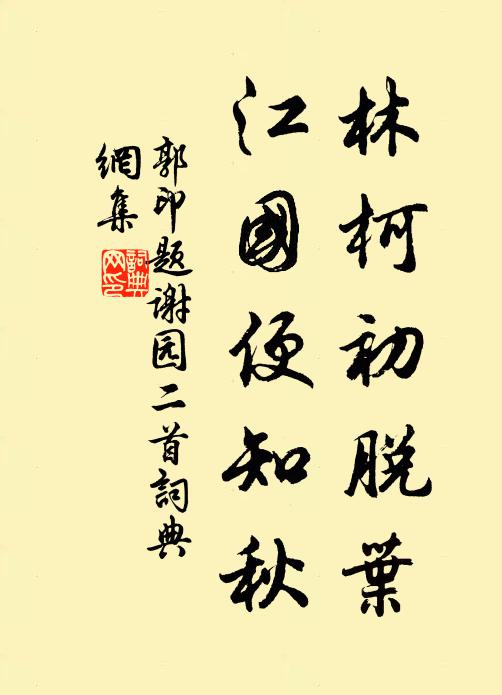 林柯初脫葉
江國便知秋
郭印题谢园二首詞典
網集
詞典網印